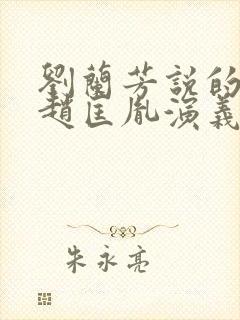 劉蘭芳說的
趙匡胤演義
朱永亮